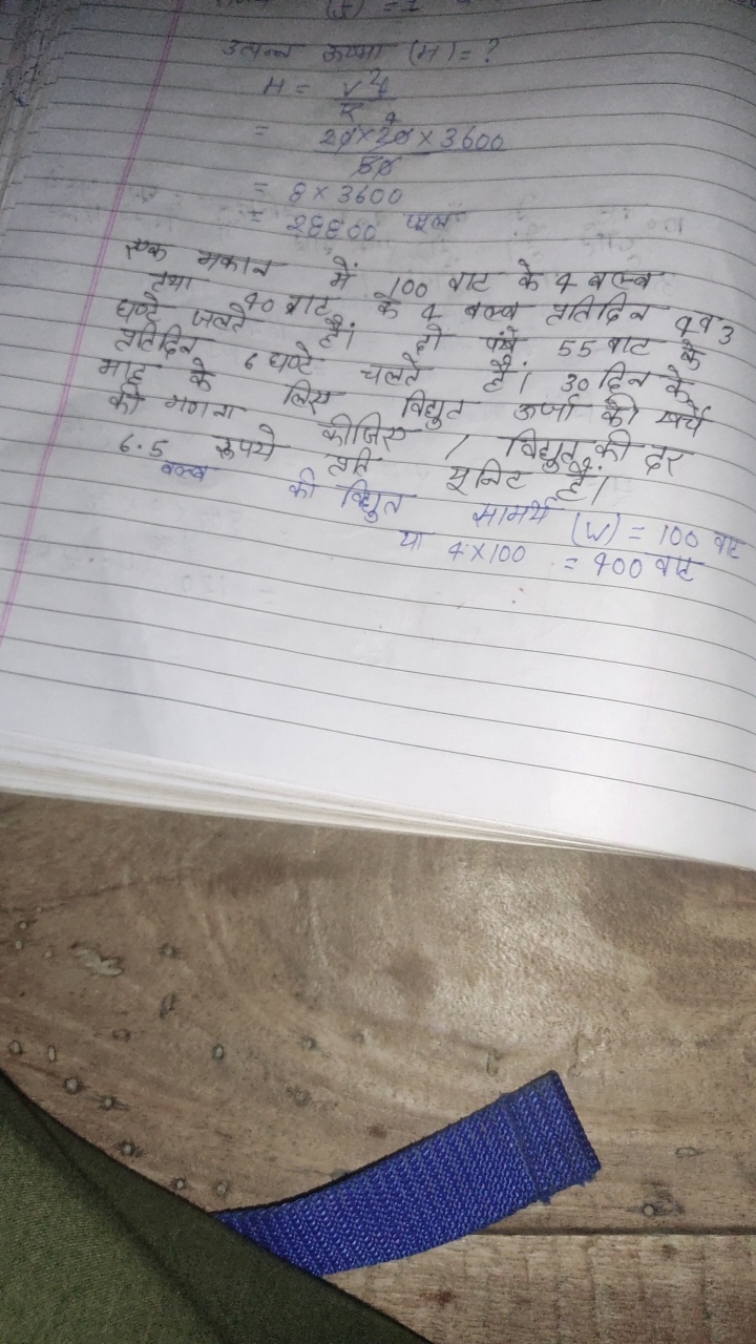 (t) = 1
उत्पन्न ऊष्मा (H) = ?
H = V²t / R
= 20 × 20 × 3600 / 50
= 8 × 3600
= 28800 जूल
एक मकान में 100 वाट के 4 बल्ब
तथा 40 वाट के 4 बल्ब प्रतिदिन 4 व 3
घण्टे जलते है। दो पंखे 55 वाट के
प्रतिदिन 6 घण्टे चलते है। 30 दिन के
माह के लिए विद्युत ऊर्जा की खर्च
की गणना कीजिए / विद्युत की दर
6.5 रूपये प्रति यूनिट है।
बल्ब की विद्युत सामर्थ (W) = 100 वाट
या 4×100 = 400 वाट